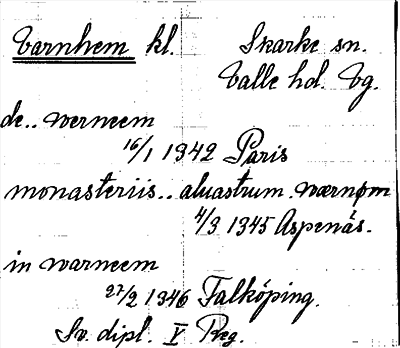 Varnhem kl. Skarke sn.
Valle hd. Vg.
de.. werneem
16/1 1342 Paris
monasteriis.. aluastrum. wærnøm
4/3 1345 Aspenäs.
in warneem
27/2 1346 Falköping.
Sv. dipl. V Reg.